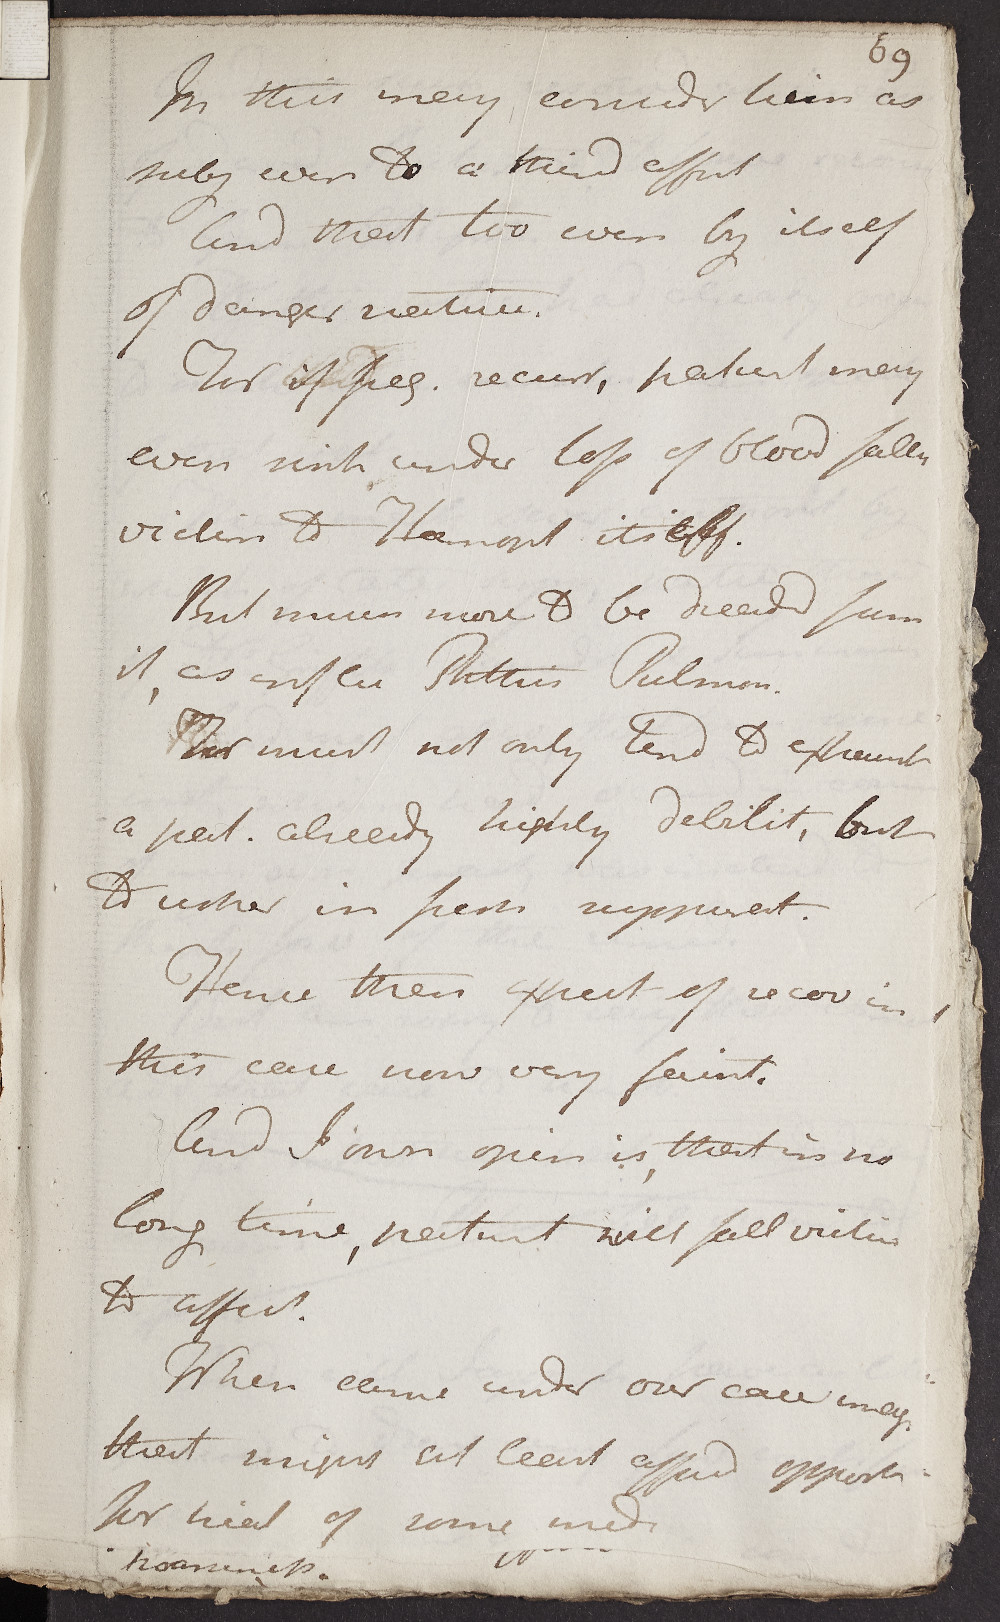 69
In this may consider him as
subj even to a third affect
And that too even by itself
of danger nature.
For if freq. recur, patient may
even sink under loss of blood fall
victim to Hæmopt itself.
But much more to be dreaded from
it, as Phthis Pulmon.
For must not only tend to exhaust
a pat. already highly debilit, but
to usher in fresh suppurat.
Hence then expect of recov in
this case now very faint.
And I own opin is, that in no
long time, patient will fall victim
to affect.
When came under our care imag.
that might at least afford opport
for trial of some med
hoarseness.